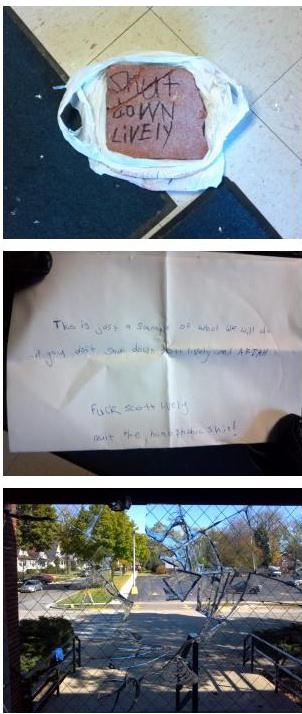 Shut
DOWN
LIVELY
This is just a sample of what we will do
if you don't shut down Scott lively and AFTAH
FUCK Scott lively
quit the homophobic shit!